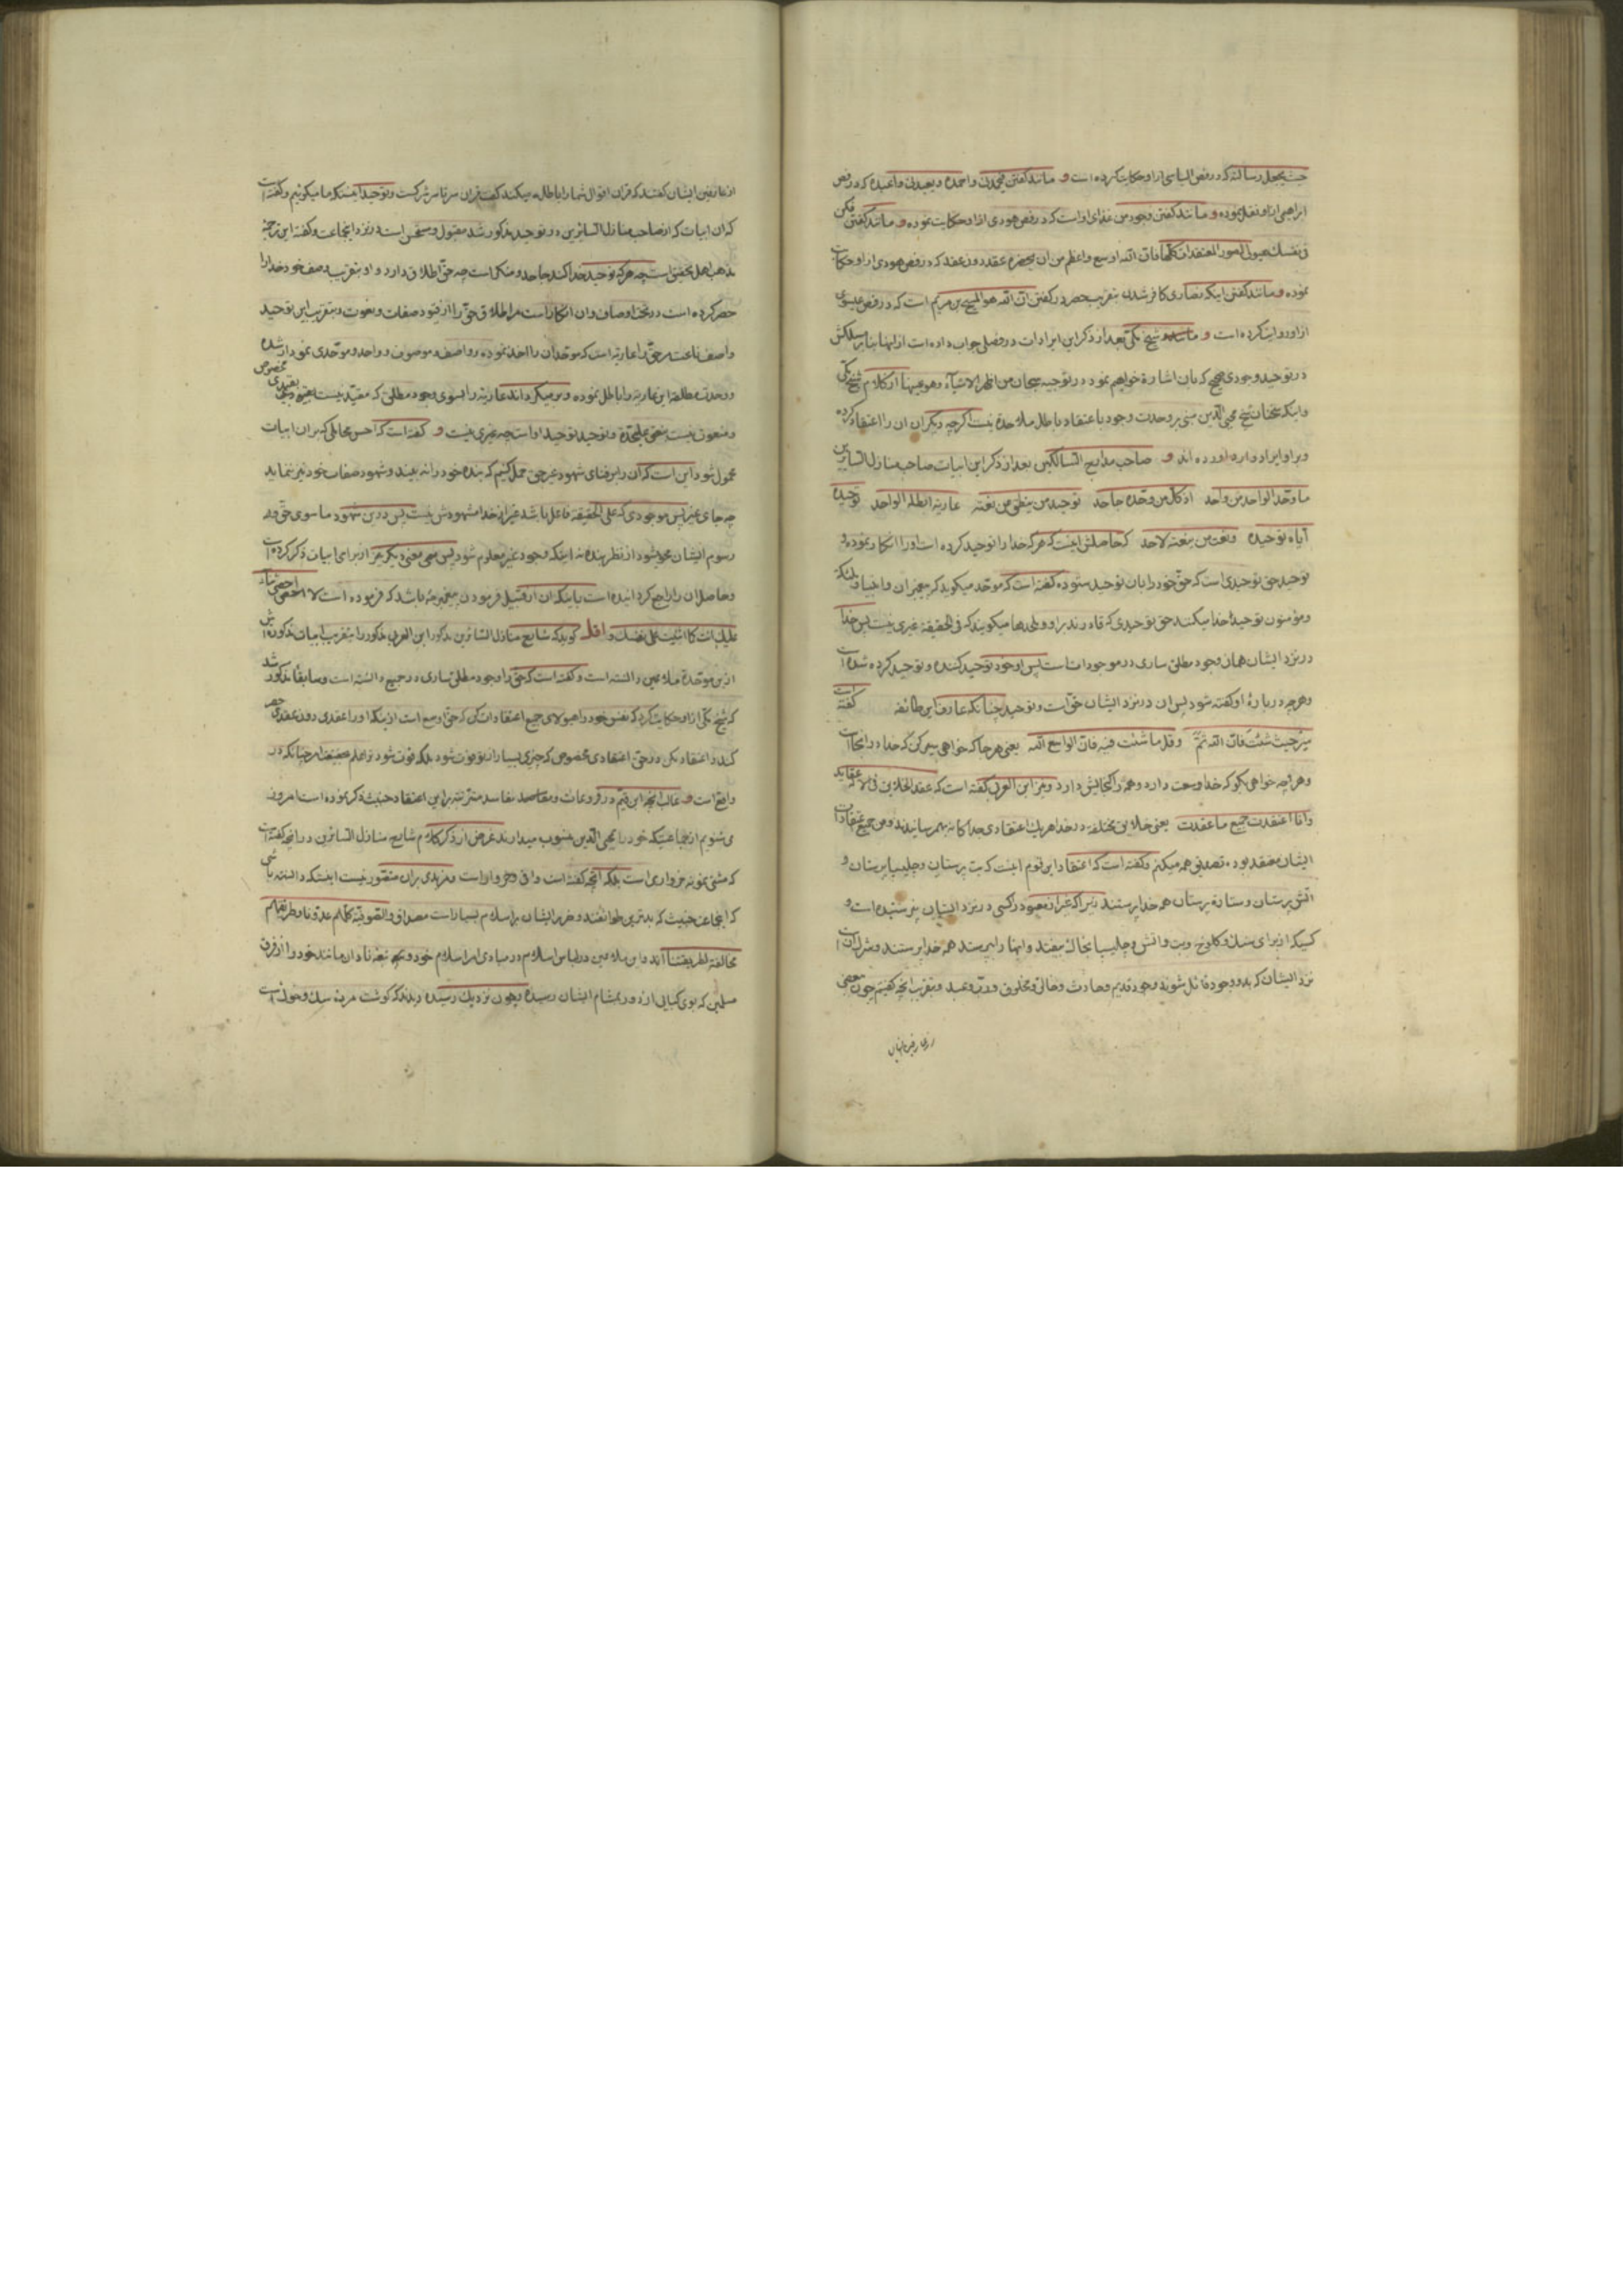 حیث یجعل رسالته که در فص الیاسی از او حکایت کرده است و مانند گفتن فیحمدنی و احمده و یعبدنی و اعبده که در فص
ابراهیمی از او نقل نموده و مانند گفتن فوجود من غذای اوست که در فص هودی از او حکایت نموده و مانند گفتن فکن
فی نفسک هیولی لصور المعتقدات کلها فان الله اوسع و اعظم من ان یحصره عقد دون عقد که در فص هودی از او حکایت
نموده و مانند گفتن اینکه نصاری کافر شدن بتقریب حصر در گفتن ان الله هو المسیح بن مریم است که در فص عیسوی
از او روایت کرده است و مانند شیخ مکی بعد از ذکر این ایرادات در فصلی جواب داده است از اینها بنا بر مسلکش
در توحید وجودی صحیح که بان اشارة خواهیم نمود در توجیه سبحان من اظهر الاشیاء و هو عینها از کلام شیخ مکی
و اینکه سخنان شیخ محیی الدین مبنی بر وحدت وجود با اعتقاد باطل ملاحده نیست اگرچه دیگران ان را اعتقاد کرده
و بر او ایراد وارد اورده اند و صاحب مدارج السالکین بعد از ذکر این ابیات صاحب منازل السایرین
ما وحد الواحد من واحد اذ کل من وحده جاحد توحید من ینطق من نعته عاریة ابطلها الواحد توحیده
ایاه توحیده و نعت من ینعته لاحد که حاصلش اینست که هر که خدا را توحید کرده است او را انکار نموده و
توحید حق توحیدی است که حق خود را بان توحید ستوده گفته است که موحد میگوید که پیغمبران و انبیا و ملئکه
و مؤمنون توحید خدا میکنند حق توحیدی که قادرند بر او و ملحدها میگویند که فی الحقیقة غیری نیست پس خدا
در نزد ایشان همان وجود مطلق ساری در موجودات است پس او خود توحید کننده و توحید کرده شده است
و هرچه در بارهٔ او گفته شود پس ان در نزد ایشان حق است و توحید چنانکه عارف این طائفه گفته است
سر حیث شئت فان الله ثم و قل ما شئت فیه فان الواسع الله یعنی هر جا که خواهی سیر کن که خدا در انجاست
و هر چه خواهی بگو که خدا وسعت دارد و همه را گنجایش دارد و نیز ابن العربی گفته است که عقد الخلایق فی الاله عقاید
و انا اعتقدت جمیع ما عقدت یعنی خلایق مختلفه در خدا هر یک اعتقادی جداگانه بهم رسانیدند و من جمیع اعتقادات
ایشان معتقد بوده تصدیق همه میکنم و گفته است که اعتقاد این قوم اینست که بت پرستان و چلیپا پرستان و
اتش پرستان و ستاره پرستان همه خدا پرستند زیرا که غیر از معبود در کسی در نزد ایشان پرستیده است و
کسیکه از برای سنگ و کلوخ و بت و اتش و چلیپا بخاک بیفتد و اینها را بپرستد همه خدا پرستند و مشرک ان است
نزد ایشان که بدو وجود قائل شوید وجود قدیم و حادث و خالق و مخلوق و رب و عبد و بتقریب انچه گفتیم چون بعضی
از عارفین ایشان گفتند که قران اقوال شما را باطل میکند گفت قران سرتاسر شرکست و توحید اینستکه ما میگوئیم و گفته است
که ان ابیات که از صاحب منازل السائرین در توحید مذکور شد مقبول و مستحسن است در نزد اینجماعت و گفته این ترجمهٔ
مذهب اهل تحقیق است چه هر که توحید خدا کند جاحد و منکر است چه حق اطلاق دارد و او بتقریب وصف خود خدا را
حصر کرده است در تحت اوصاف و ان انکار است مر اطلاق حق را از قیود صفات و نعوت و بتقریب این توحید
واصف ناعت مر حق را عاریة است که موحد ان را اخذ نموده و واصف و موصوف و واحد و موحدی نمودار شده
و وحدت مطلقه این عاریة را باطل نموده و برمیگرداند عاریة را بسوی وجود مطلق که مقید نیست بقیدی مخصوص
و منعوت نیست بنعتی علیحده و توحید توحید او است چه غیری نیست و گفته است که احسن محاملی که بر ان ابیات
محمول شود این است که ان را بر فنای شهود غیر حق حمل کنیم که بنده خود را نه بیند و شهود صفات خود نیز ننماید
چه جای غیر پس موجودی که علی الحقیقة فاعل باشد غیر از خدا مشهودش نیست پس در این شهود ما سوی حق و
رسوم ایشان محو میشود از نظر بنده نه اینکه وجود غیر معلوم شود پس سعی معنی دیگر هم از برای ابیات ذکر کرده است
و حاصل ان را راجع گردانیده است باینکه ان از قبیل فرمودن پیغمبر ما باشد که فرموده است لا احصی ثناء
علیک انت کما اثنیت علی نفسک و اقلـ گوید که شارح منازل السائرین مذکور ابن العربی مذکور را بتقریب ابیات مذکوره اش
از این موحدهٔ ملاعین دانسته است و گفته است که حق را وجود مطلق ساری در جمیع دانسته است و سابقا مذکور شد
که شیخ مکی از او حکایت کرد که نفس خود را هیولای جمیع اعتقادات کن که حق اوسع است از اینکه او را عقدی دون عقدی حصر
کند و اعتقاد نکن در حق اعتقادی مخصوص که چیزی بسیار از تو فوت شود بلکه فوت شود ترا علم بحقیقت امر چنانکه در
واقع است و غالب انچه ابن قیم در فروعات و مقاصد مفاسد مترتبه بر این اعتقاد خبیث ذکر نموده است امروز
می شنویم از جماعتیکه خود را بمحیی الدین منسوب میدارند غرض از ذکر کلام شارح منازل السائرین در انچه گفته است
که مشتی نمونه خرواری است بلکه انچه گفته است وافی و خرواراست و مزیدی بر ان متصور نیست اینستکه دانسته باشی
که اینجماعت خبیث که بدترین طوائفند و ضرر ایشان بر اسلام بسیار است مصداق و الصوفیة کلهم عدونا و طریقتهم
مخالفة لطریقتنا اند و این ملاعین در لباس اسلام در مبادی امر اسلام خود و بچه شعه نادان مانند خود را از فرق
مسلمین که بوی کبابی از دور بمشام ایشان رسیده و چون نزدیک رسیده دیدند که گوشت مردهٔ سگ و خوک است